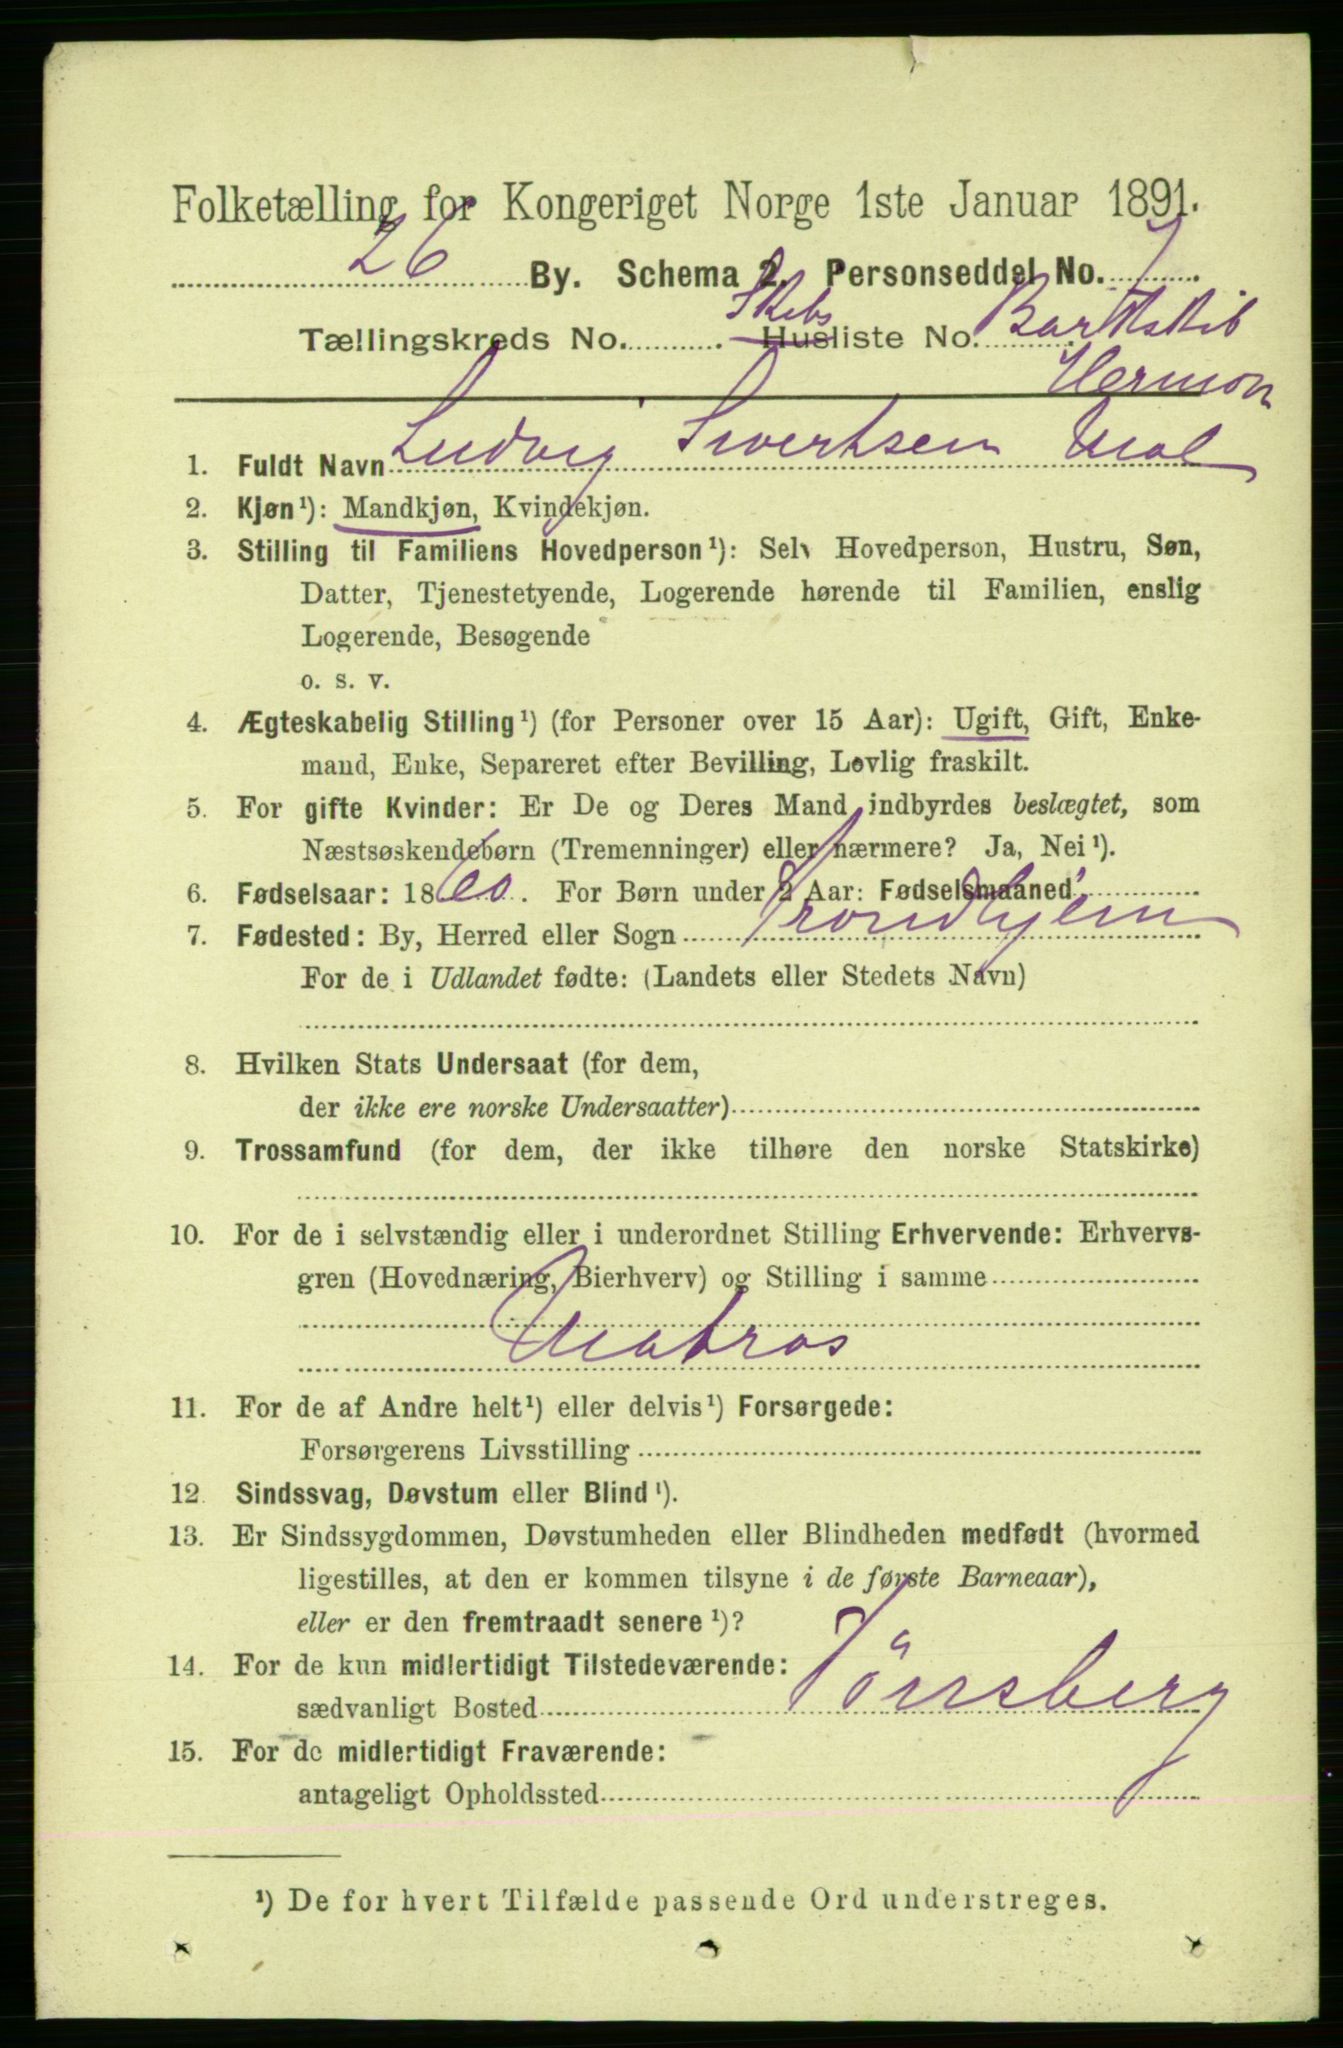 Folketælling for Kongeriget Norge 1ste Januar 1891.
26 By. Schema 2. Personseddel No. 7.
Tællingskreds No. . Skibs Husliste No. Barkskib
Hermon
1. Fuldt Navn Ludvig Sivertsen
2. Kjøn¹): Mandkjøn, Kvindekjøn.
3. Stilling til Familiens Hovedperson¹): Selv Hovedperson, Hustru, Søn,
Datter, Tjenestetyende, Logerende hørende til Familien, enslig
Logerende, Besøgende
o. s. v.
4. Ægteskabelig Stilling¹) (for Personer over 15 Aar): Ugift, Gift, Enke-
mand, Enke, Separeret efter Bevilling, Lovlig fraskilt.
5. For gifte Kvinder: Er De og Deres Mand indbyrdes beslægtet, som
Næstsøskendebørn (Tremenninger) eller nærmere? Ja, Nei¹).
6. Fødselsaar: 1860. For Børn under 2 Aar: Fødselsmaaned
7. Fødested: By, Herred eller Sogn Trondhjem
For de i Udlandet fødte: (Landets eller Stedets Navn)
8. Hvilken Stats Undersaat (for dem,
der ikke ere norske Undersaatter)
9. Trossamfund (for dem, der ikke tilhøre den norske Statskirke)
10. For de i selvstændig eller i underordnet Stilling Erhvervende: Erhvervs-
gren (Hovednæring, Bierhverv) og Stilling i samme
Matros
11. For de af Andre helt¹) eller delvis¹) Forsørgede:
Forsørgerens Livsstilling
12. Sindssvag, Døvstum eller Blind¹).
13. Er Sindssygdommen, Døvstumheden eller Blindheden medfødt (hvormed
ligestilles, at den er kommen tilsyne i de første Barneaar),
eller er den fremtraadt senere¹)?
14. For de kun midlertidigt Tilstedeværende:
sædvanligt Bosted Tönsberg
15. For de midlertidigt Fraværende:
antageligt Opholdssted
¹) De for hvert Tilfælde passende Ord understreges.